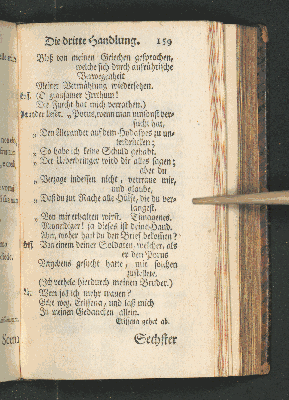 Die dritte Handlung. 159
Bloß von meinen Griechen gesprochen,
welche sich durch aufrührische
Verwegenheit
Meiner Vermählung widersetzen.
Eriß. (O grausamer Irrthum!
Die Furcht hat mich verrathen.)
lieset. „Porus, wenn man umsonst versucht hat,
„ Den Alexander auf dem Hydaspes zu unterdrücken;
„ So habe ich keine Schuld gehabt.
„ Der Ueberbringer wird dir alles sagen;
aber du
„ Verzage indessen nicht, vertraue mir,
und glaube,
„ Daß du zur Rache alle Hülfe, die du verlangest,
„ Von mir erhalten wirst. Timagenes.
Meineidiger! ja dieses ist deine Hand.
Aber, woher hast du den Brief bekommen?
Eriß. Von einem deiner Soldaten, welcher, als
er den Porus
Vergebens gesucht hatte, mir solchen
zustellete.
(Ich verhele hierdurch meinen Bruder.)
Wem soll ich mehr trauen?
Gehe weg, Erissena, und laß mich
In meinen Gedancken allein.
Erissena gehet ab.
Sechster